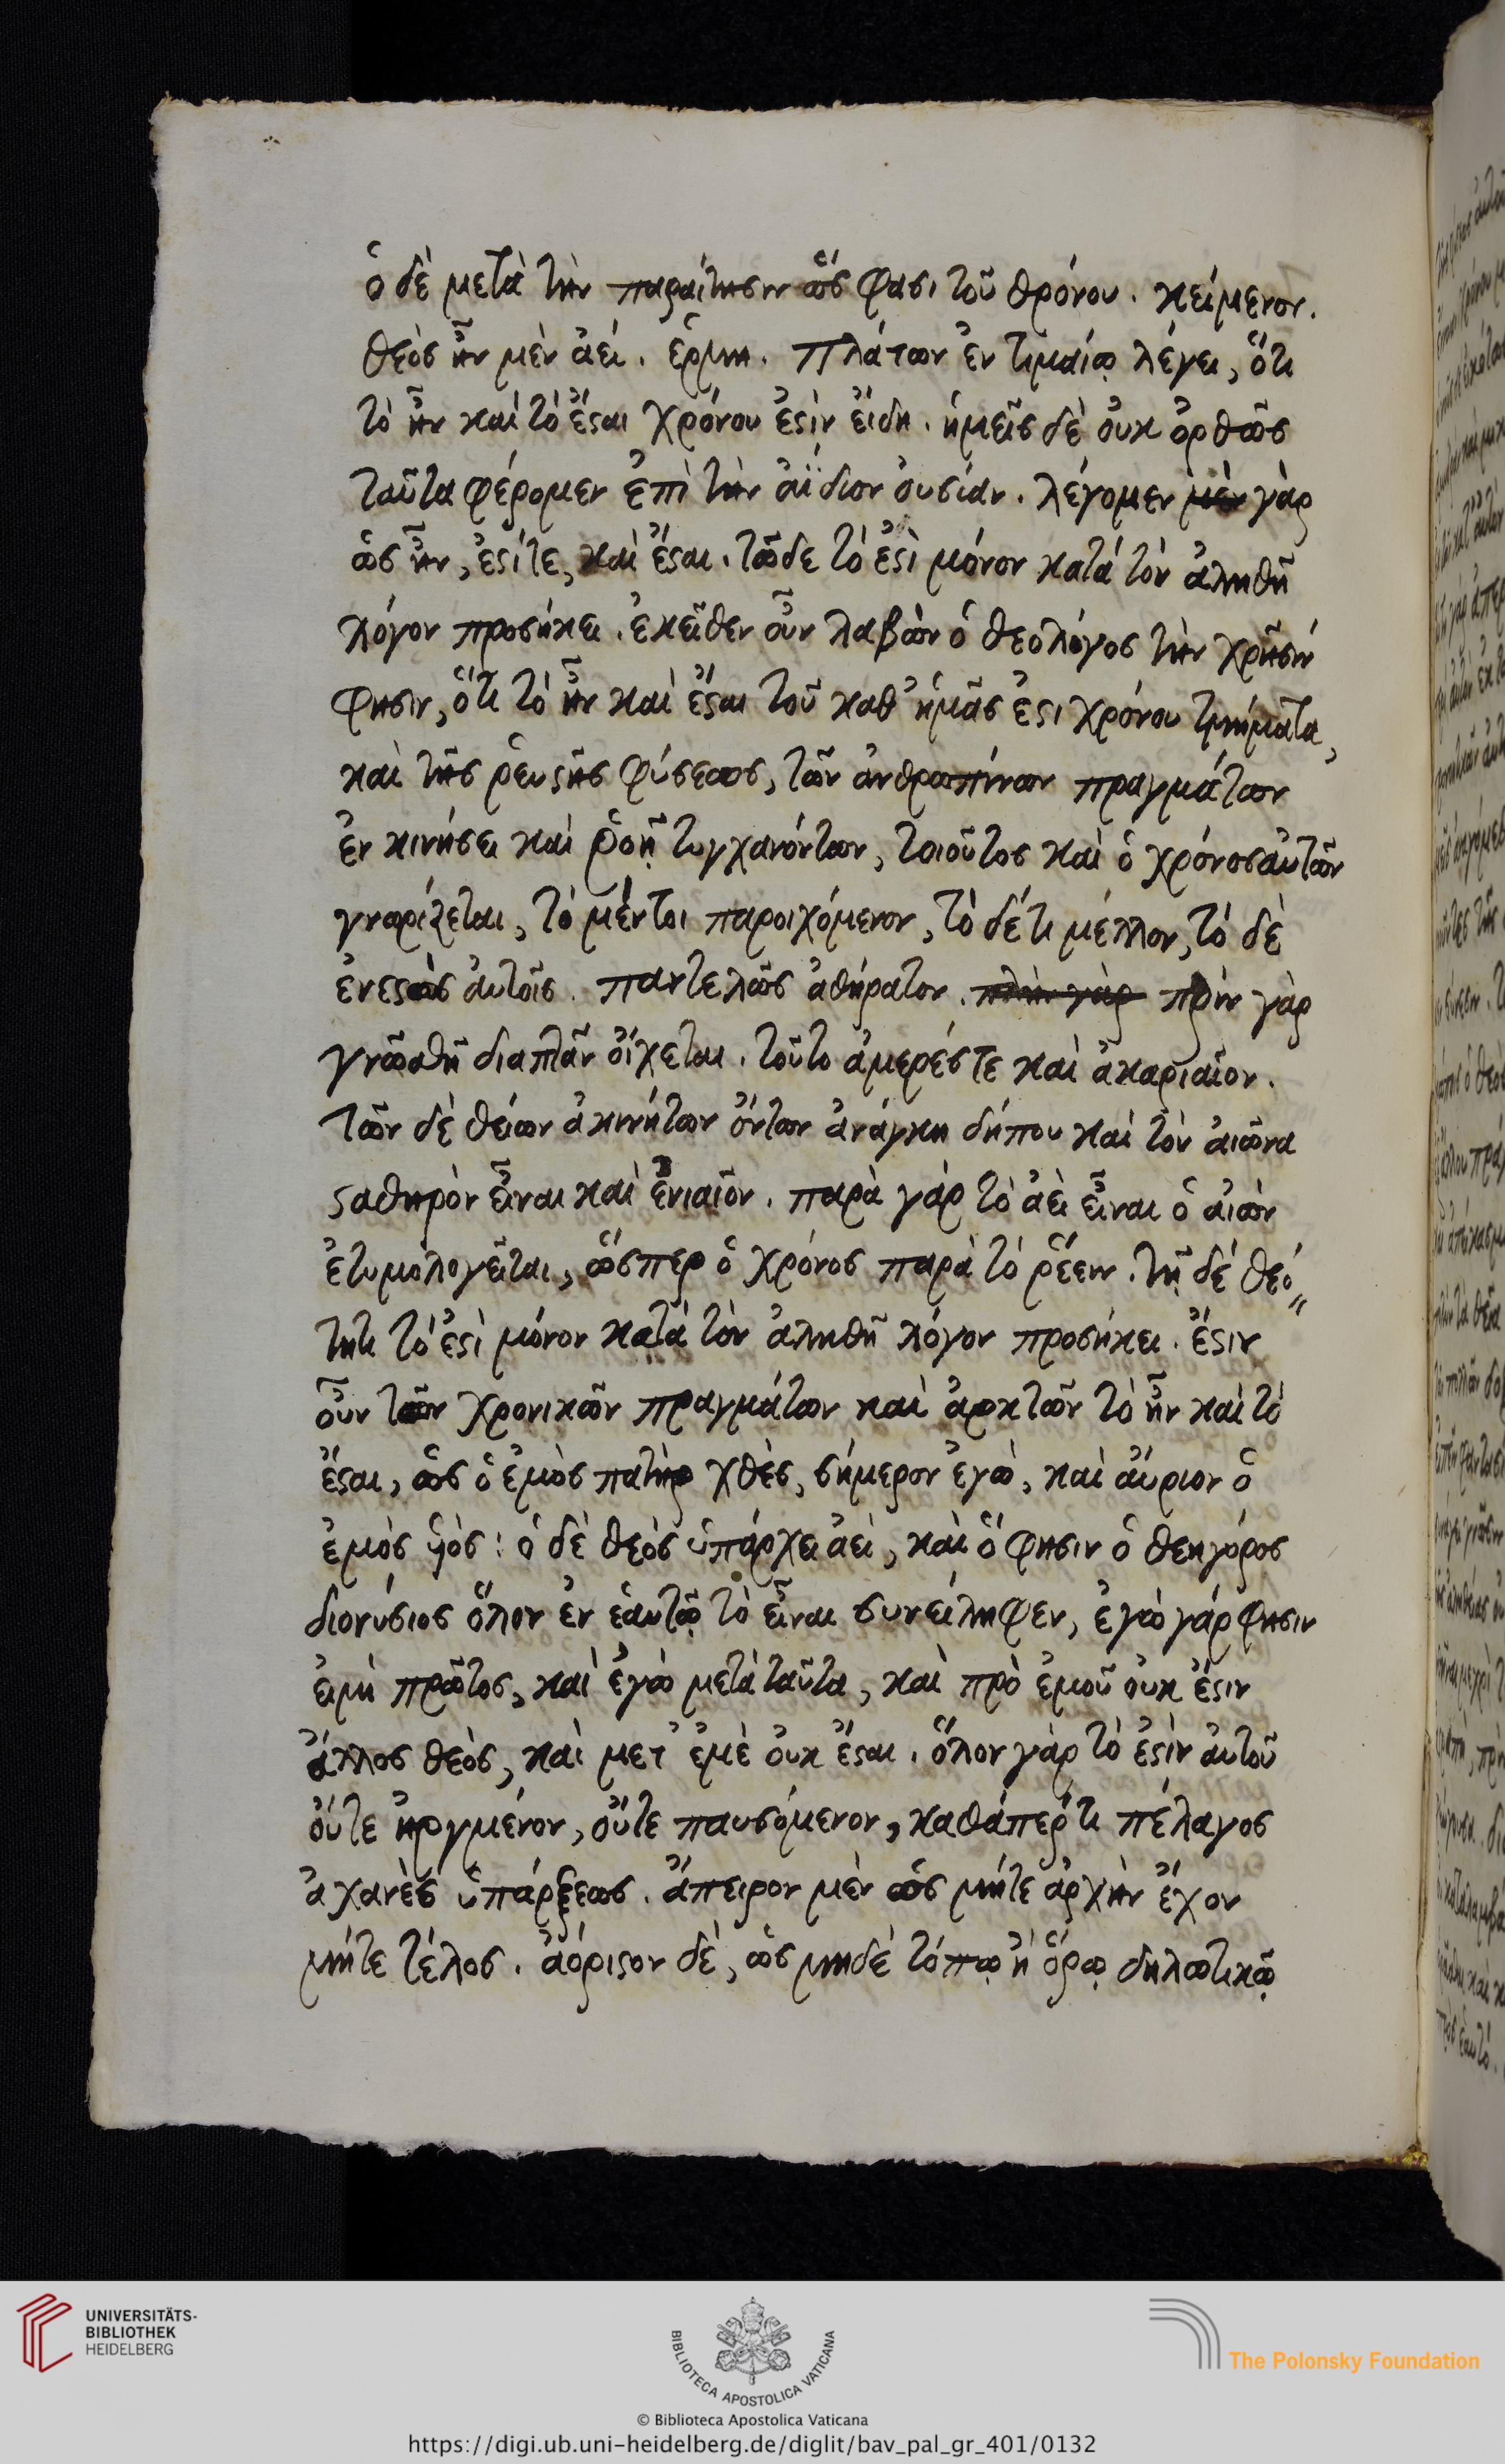 ὁ δὲ μετὰ τὴν παραίτησιν ὥς φασι τοῦ θρόνου. κείμενον.
θεὸς ἦν μὲν ἀεί. ἑρμη. Πλάτων ἐν τιμαίῳ λέγει, ὅτι
τὸ ἦν καὶ τὸ ἔσται χρόνου ἐστὶν εἴδη. ἡμεῖς δὲ οὐκ ὀρθῶς
ταῦτα φέρομεν ἐπὶ τὴν ἀΐδιον οὐσίαν. λέγομεν μὲν γὰρ
ὡς ἦν, ἐστί τε, καὶ ἔσται. τῶδε τὸ ἐστὶ μόνον κατὰ τὸν ἀληθῆ
λόγον προσήκει. ἐκεῖθεν οὖν λαβὼν ὁ θεολόγος τὴν χρῆσιν
φησιν, ὅτι τὸ ἦν καὶ ἔσται τοῦ καθ' ἡμᾶς ἐστι χρόνου τμήματα,
καὶ τῆς ῥευστῆς φύσεως, τῶν ἀνθρωπίνων πραγμάτων
ἐν κινήσει καὶ ῥοῇ τυγχανόντων, τοιοῦτος καὶ ὁ χρόνος αὐτῶν
γνωρίζεται, τὸ μέντοι παροιχόμενον, τὸ δέ τι μέλλον, τὸ δὲ
ἐνεστὼς αὐτοῖς. παντελῶς ἀθήρατον. πλὴν γὰρ πρὶν γὰρ
γνωσθῆ διαπτὰν οἴχεται. τοῦτο ἀμερές τε καὶ ἀκαριαῖον.
τῶν δὲ θείων ἀκινήτων ὄντων ἀνάγκη δήπου καὶ τὸν αἰῶνα
σταθηρὸν εἶναι καὶ ἑνιαῖον. παρὰ γὰρ τὸ ἀεὶ εἶναι ὁ αἰὼν
ἐτυμολογεῖται, ὥσπερ ὁ χρόνος παρὰ τὸ ῥέειν. τῇ δὲ θεό
τητι τὸ ἐστὶ μόνον κατὰ τὸν ἀληθῆ λόγον προσήκει. ἔστιν
οὖν τῶν χρονικῶν πραγμάτων καὶ ἀρκτῶν τὸ ἦν καὶ τὸ
ἔσται, ὡς ὁ ἐμὸς πατὴρ χθὲς, σήμερον ἐγὼ, καὶ αὔριον ὁ
ἐμὸς ὑὸς: ὁ δὲ θεὸς ὑπάρχει ἀεὶ, καὶ ὅ φησιν ὁ θεηγόρος
διονύσιος ὅλον ἐν ἑαυτῷ τὸ εἶναι συνείληφεν, ἐγὼ γάρ φησιν
εἰμὴ πρῶτος, καὶ ἐγὼ μετὰ ταῦτα, καὶ πρὸ ἐμοῦ οὐκ ἔστιν
ἄλλος θεὸς, καὶ μετ' ἐμὲ οὐκ ἔσται. ὅλον γὰρ τὸ ἐστὶν αὐτοῦ
οὔτε ἠργμένον, οὔτε παυσόμενον, καθάπερ τι πέλαγος
ἀχανὲς ὑπάρξεως. ἄπειρον μὲν ὡς μήτε ἀρχὴν ἔχον
μήτε τέλος. ἀόριστον δὲ, ὡς μηδὲ τόπῳ ἢ ὅρῳ δηλωτικῷ
UNIVERSITÄTS-
BIBLIOTHEK
HEIDELBERG
BIBLIOTECA APOSTOLICA VATICANA
The Polonsky Foundation
© Biblioteca Apostolica Vaticana
https://digi.ub.uni-heidelberg.de/diglit/bav_pal_gr_401/0132